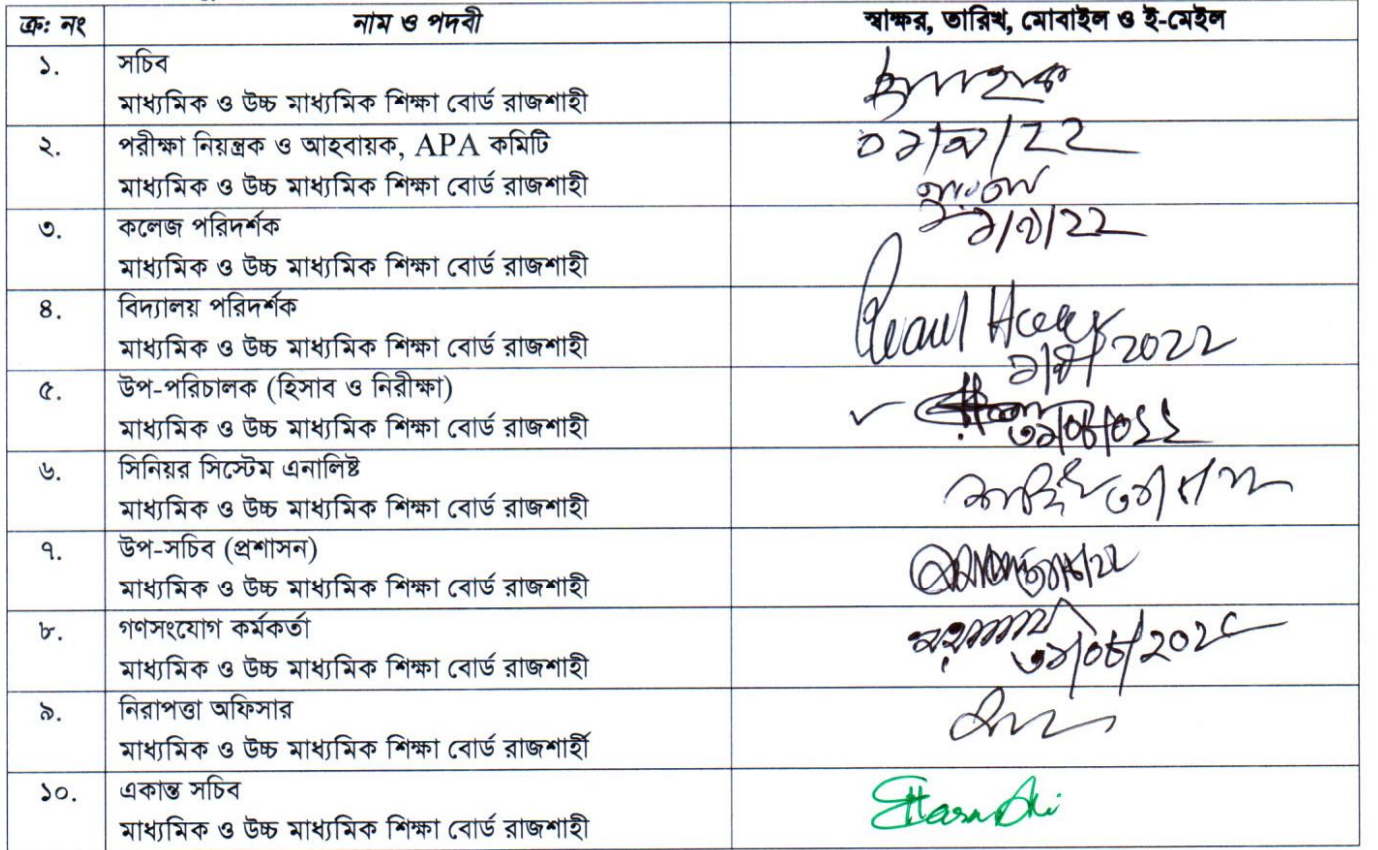 ক্র: নং নাম ও পদবী স্বাক্ষর, তারিখ, মোবাইল ও ই-মেইল
১. সচিব
মাধ্যমিক ও উচ্চ মাধ্যমিক শিক্ষা বোর্ড রাজশাহী
২. পরীক্ষা নিয়ন্ত্রক ও আহবায়ক, APA কমিটি
মাধ্যমিক ও উচ্চ মাধ্যমিক শিক্ষা বোর্ড রাজশাহী
৩. কলেজ পরিদর্শক
মাধ্যমিক ও উচ্চ মাধ্যমিক শিক্ষা বোর্ড রাজশাহী
৪. বিদ্যালয় পরিদর্শক
মাধ্যমিক ও উচ্চ মাধ্যমিক শিক্ষা বোর্ড রাজশাহী
৫. উপ-পরিচালক (হিসাব ও নিরীক্ষা)
মাধ্যমিক ও উচ্চ মাধ্যমিক শিক্ষা বোর্ড রাজশাহী
৬. সিনিয়র সিস্টেম এনালিষ্ট
মাধ্যমিক ও উচ্চ মাধ্যমিক শিক্ষা বোর্ড রাজশাহী
৭. উপ-সচিব (প্রশাসন)
মাধ্যমিক ও উচ্চ মাধ্যমিক শিক্ষা বোর্ড রাজশাহী
৮. গণসংযোগ কর্মকর্তা
মাধ্যমিক ও উচ্চ মাধ্যমিক শিক্ষা বোর্ড রাজশাহী
৯. নিরাপত্তা অফিসার
মাধ্যমিক ও উচ্চ মাধ্যমিক শিক্ষা বোর্ড রাজশার্হী
১০. একান্ত সচিব
মাধ্যমিক ও উচ্চ মাধ্যমিক শিক্ষা বোর্ড রাজশাহী